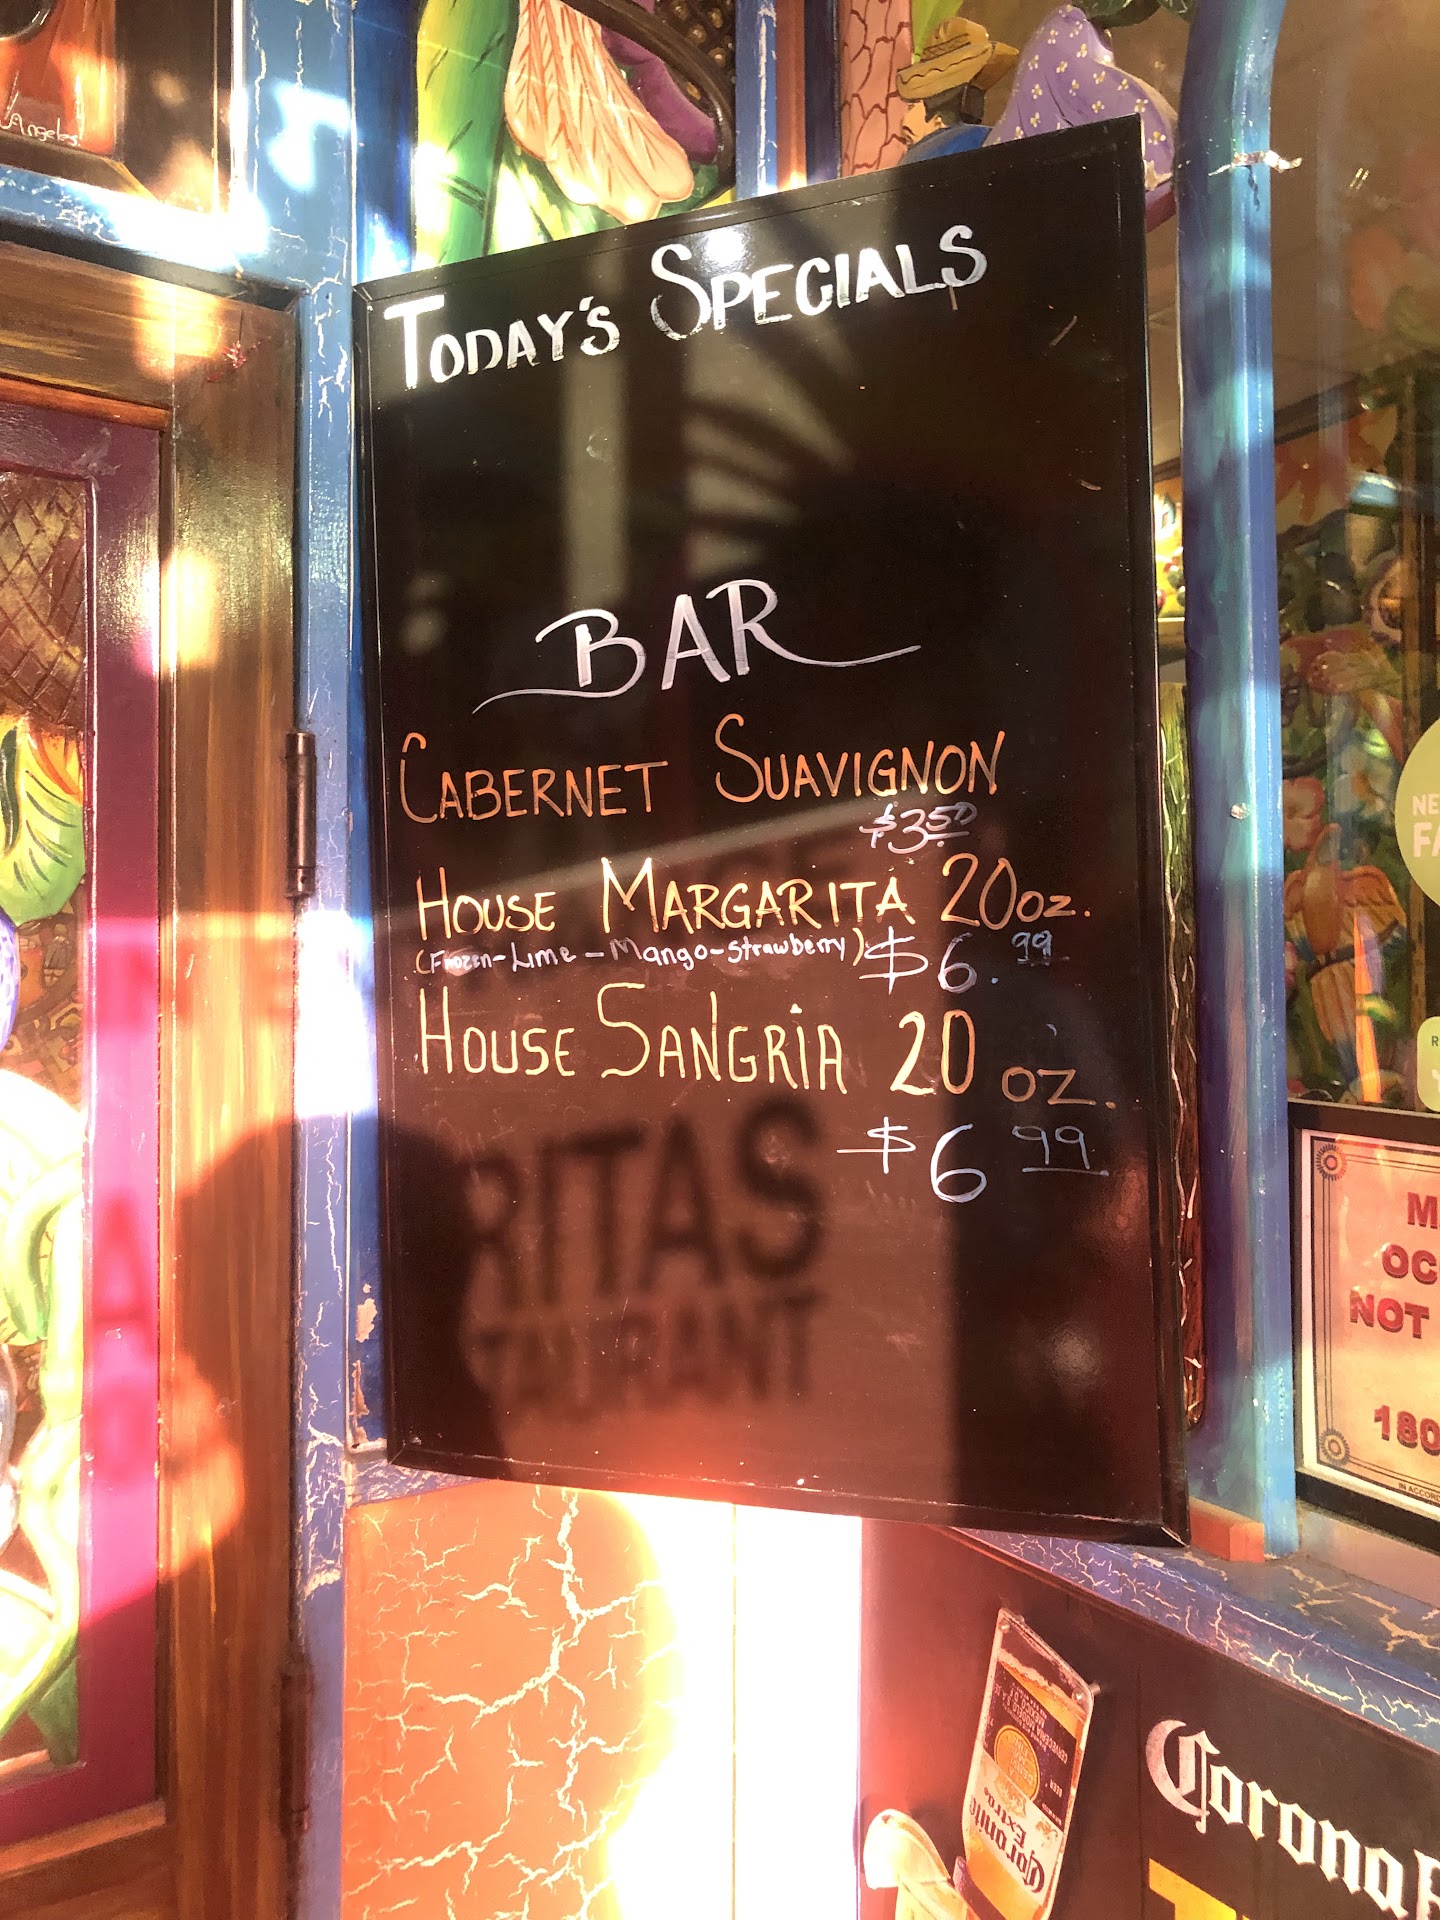 Angeles
TODAY'S SPECIALS
BAR
CABERNET SUAVIGNON
$3.50
HOUSE MARGARITA 20oz.
(Frozen-Lime-Mango-Strawberry) $6.99
HOUSE SANGRIA 20 OZ.
$6 99
RITAS
RANT
NE
FA
R
M
OC
NOT
180
IN ACCORD
Corona
Extra
Corona